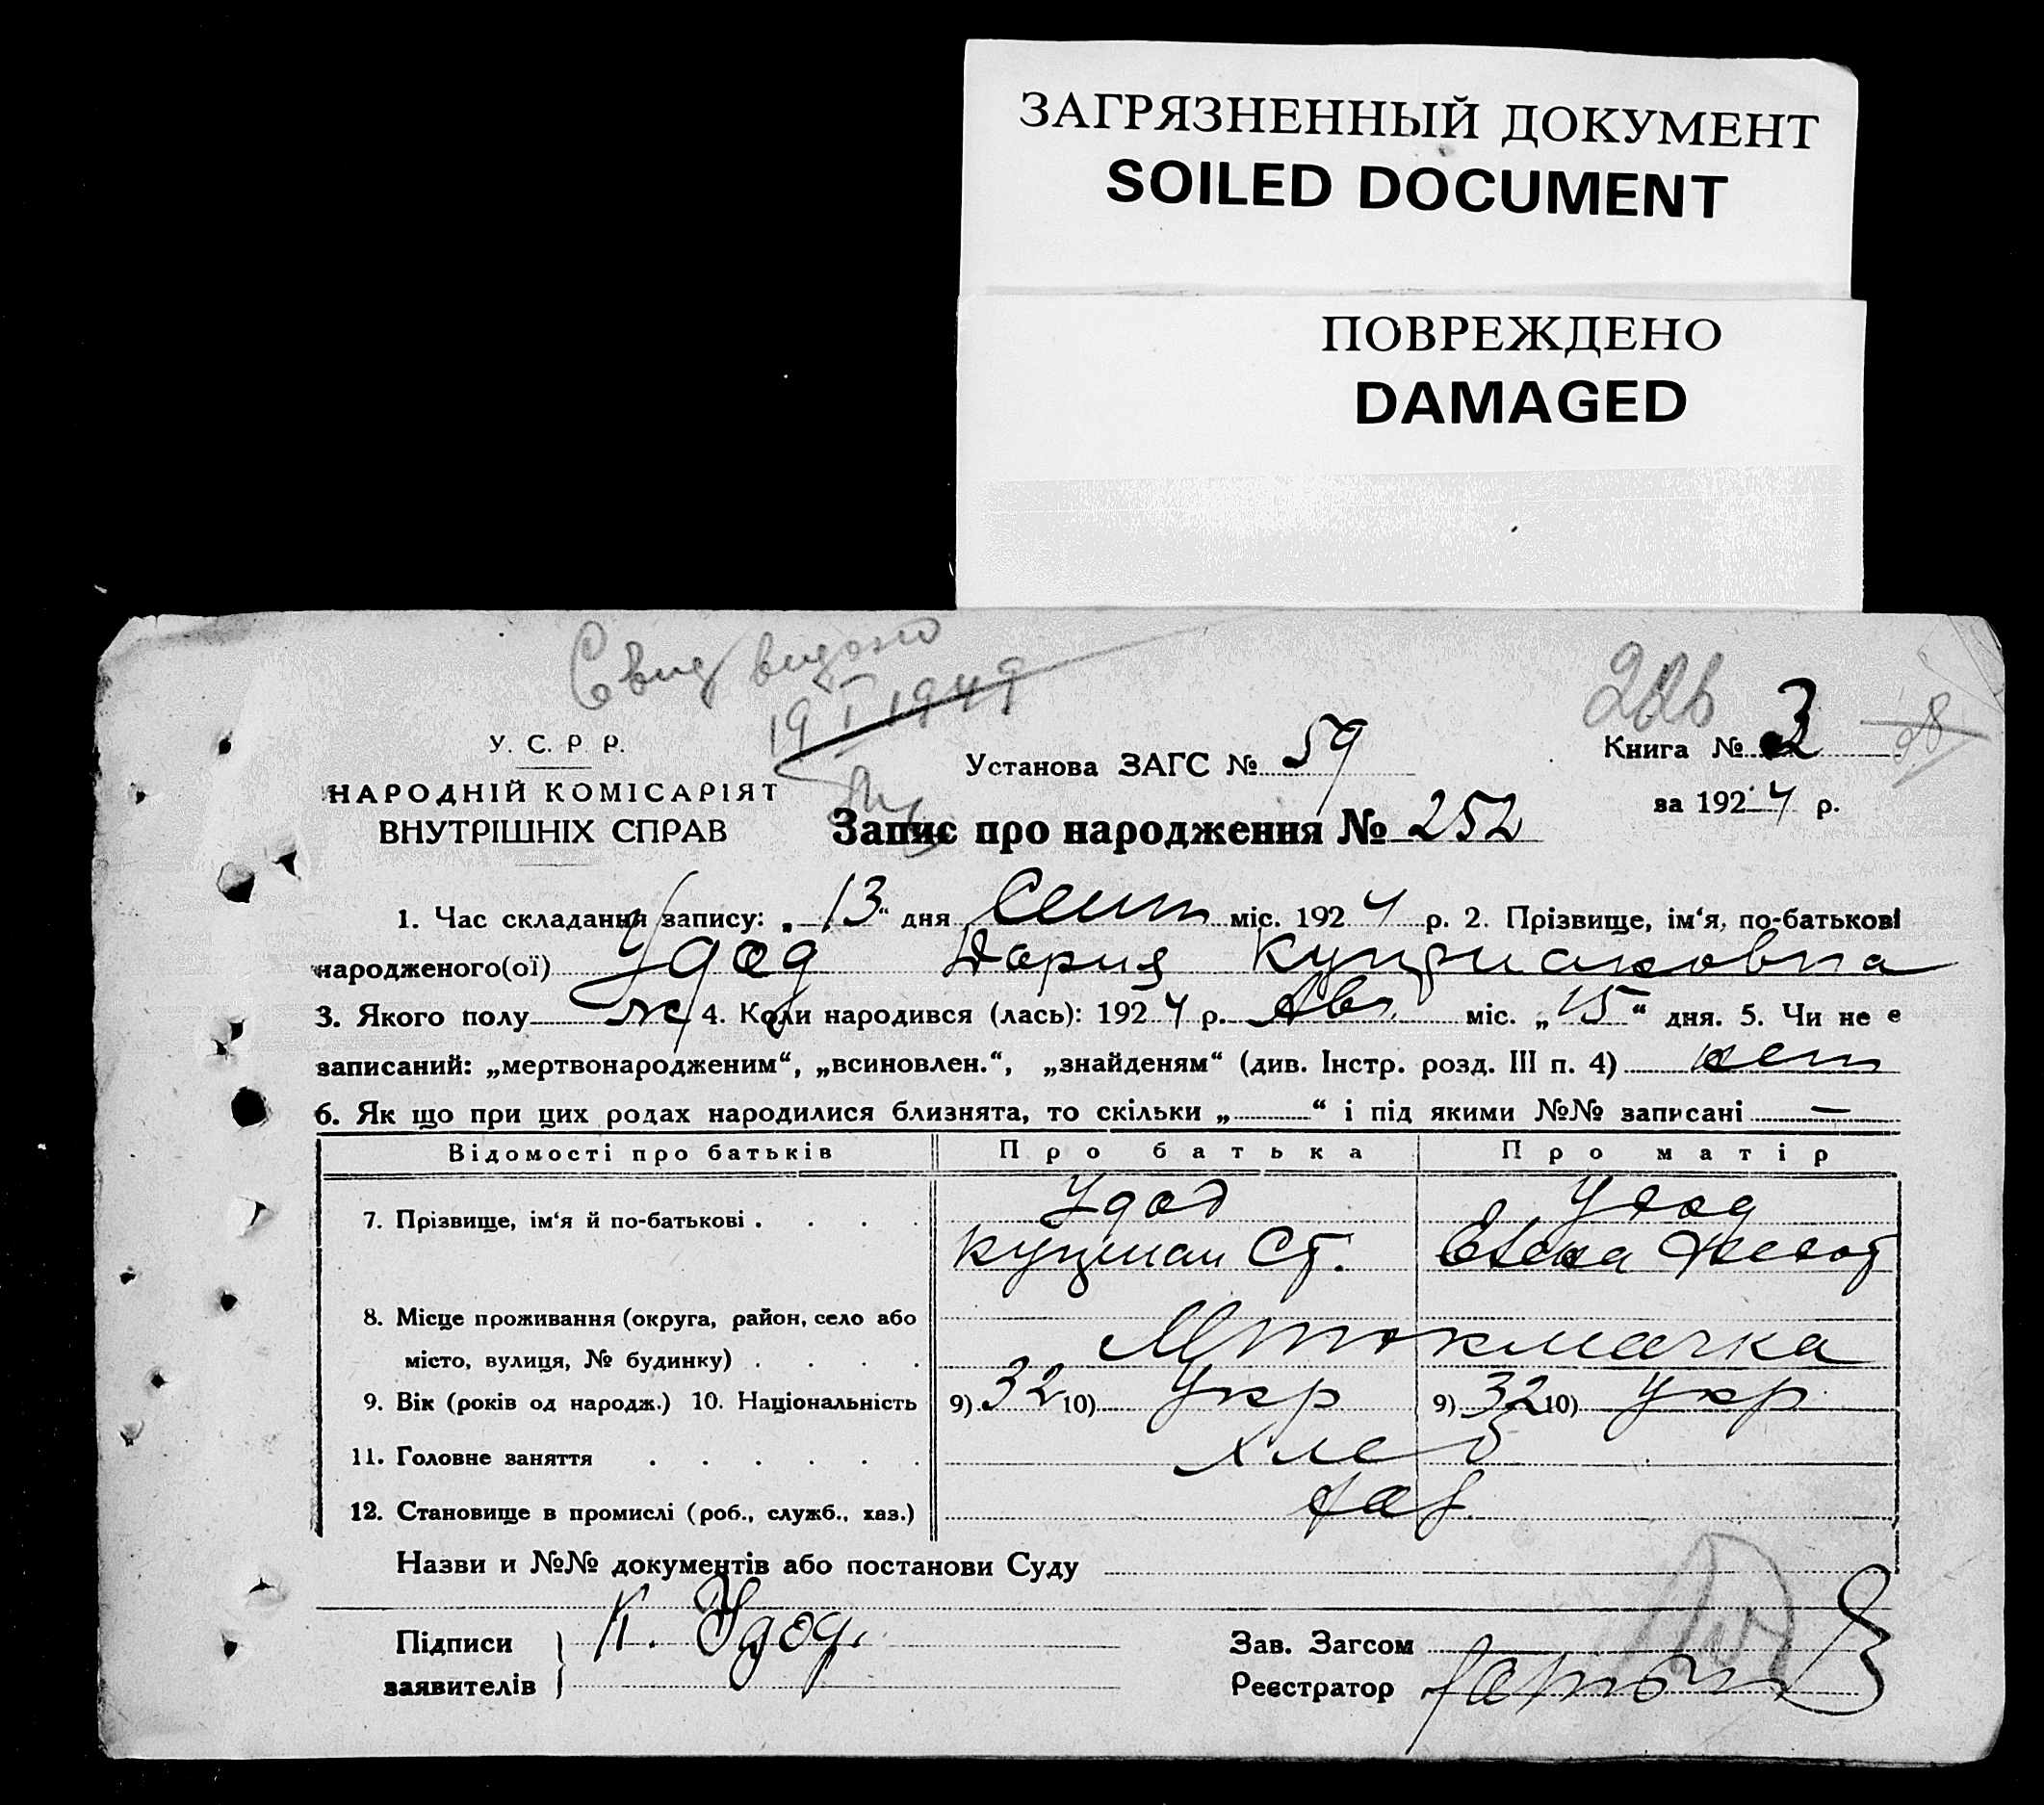 ЗАГРЯЗНЕННЫЙ ДОКУМЕНТ
SOILED DOCUMENT
ПОВРЕЖДЕНО
DAMAGED
Свид видано
19 I 1949
У. С. Р Р.
НАРОДНІЙ КОМІСАРІЯТ
ВНУТРІШНІХ СПРАВ
Установа ЗАГС № 59
Книга № 3
за 1924 р.
Запис про народження № 252
1. Час складання запису: „13“ дня Сент міс. 1924 р. 2. Прізвище, ім‘я, по-батькові
народженого(ої) Удод Дария
3. Якого полу ж 4. Коли народився (лась): 1924 р. Авг. міс. „15“ дня. 5. Чи не є
записаний: „мертвонародженим“, „всиновлен.“, „знайденям“ (див. Інстр. розд. III п. 4) нет
6. Як що при цих родах народилися близнята, то скільки „......“ і під якими №№ записані —
Відомості про батьків Про батька Про матір
7. Прізвище, ім‘я й по-батькові . . . . Удод Удод
Ст. Елена
8. Місце проживання (округа, район, село або
місто, вулиця, № будинку) . . . . М токмачка
9. Вік (років од народж.) 10. Національність 9) 32 10) Укр 9) 32 10) Укр
11. Головне заняття . . . . . . хлеб
12. Становище в промислі (роб., служб., хаз.) хаз
Назви и №№ документів або постанови Суду
Підписи К. Удод.
заявителів
Зав. Загсом
Реєстратор